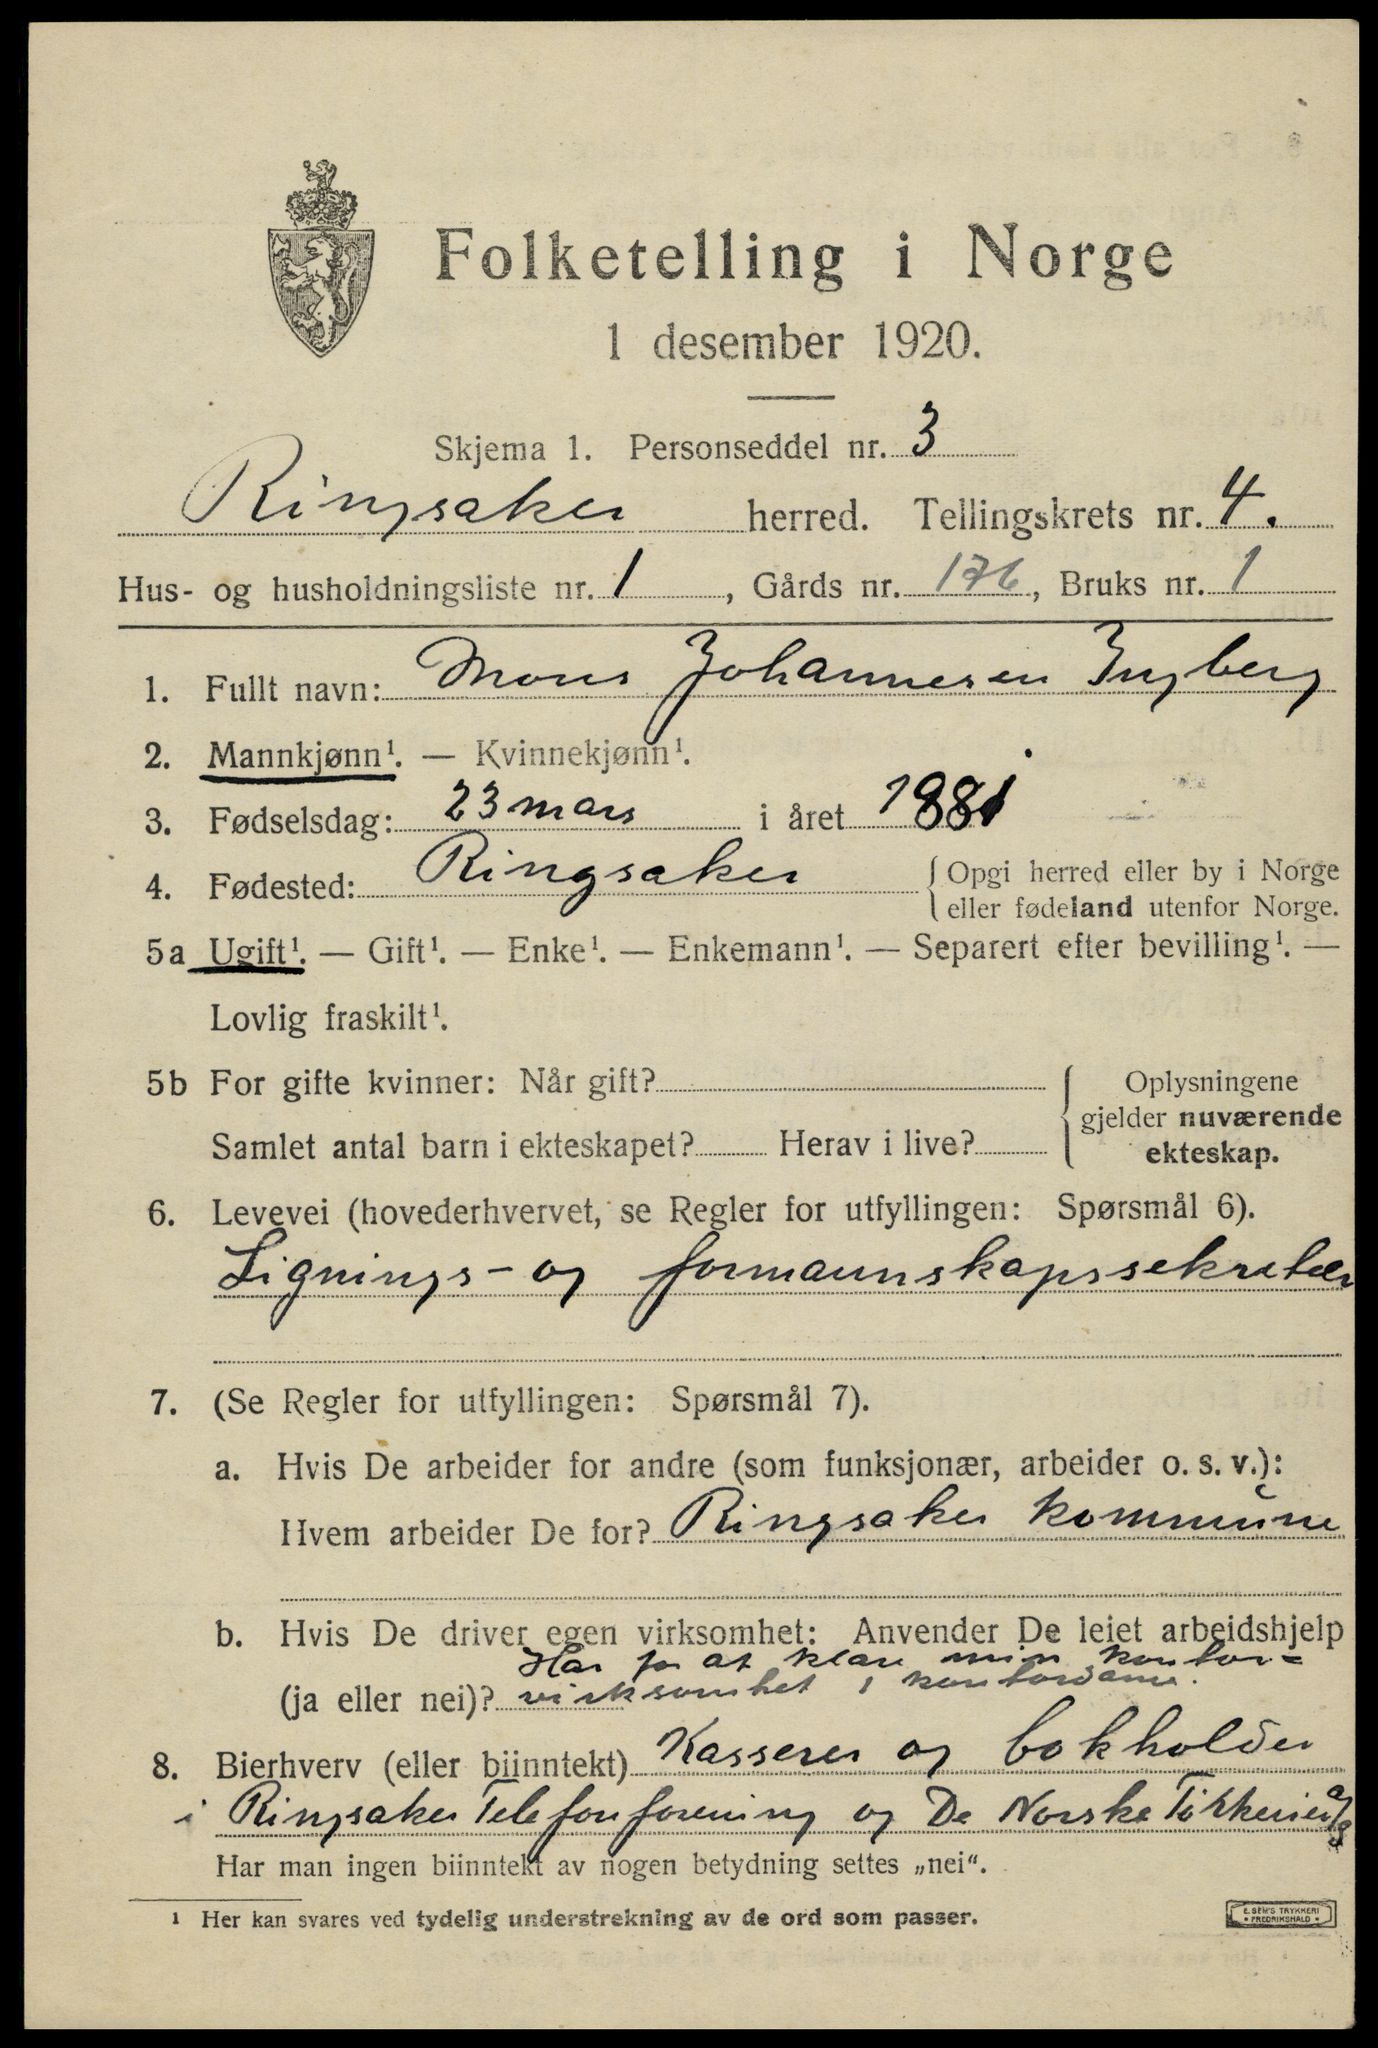 Folketelling i Norge
1 desember 1920.
Skjema 1. Personseddel nr. 3
Ringsaker herred. Tellingskrets nr. 4.
Hus- og husholdningsliste nr. 1, Gårds nr. 176, Bruks nr. 1
1. Fullt navn: Mons Johannesen Ingberg
2. Mannkjønn¹. — Kvinnekjønn¹.
3. Fødselsdag: 23 mars i året 1881
4. Fødested: Ringsaker {Opgi herred eller by i Norge
eller fødeland utenfor Norge.
5a Ugift¹. — Gift¹. — Enke¹. — Enkemann¹. — Separert efter bevilling¹. —
Lovlig fraskilt¹.
5b For gifte kvinner: Når gift? { Oplysningene
gjelder nuværende
Samlet antal barn i ekteskapet? Herav i live? ekteskap.
6. Levevei (hovederhvervet, se Regler for utfyllingen: Spørsmål 6).
Lignings- og formannskapssekretær
7. (Se Regler for utfyllingen: Spørsmål 7).
a. Hvis De arbeider for andre (som funksjonær, arbeider o. s. v.):
Hvem arbeider De for? Ringsaker kommune
b. Hvis De driver egen virksomhet: Anvender De leiet arbeidshjelp
Har for at klare min kontor=
(ja eller nei)? virksomhet 1 kontordame.
8. Bierhverv (eller biinntekt) Kasserer og bokholder
i Ringsaker Telefonforening og De Norske Tikkerier a/s
Har man ingen biinntekt av nogen betydning settes „nei“.
¹ Her kan svares ved tydelig understrekning av de ord som passer.
E. SEM'S TRYKKERI
FREDRIKSHALD